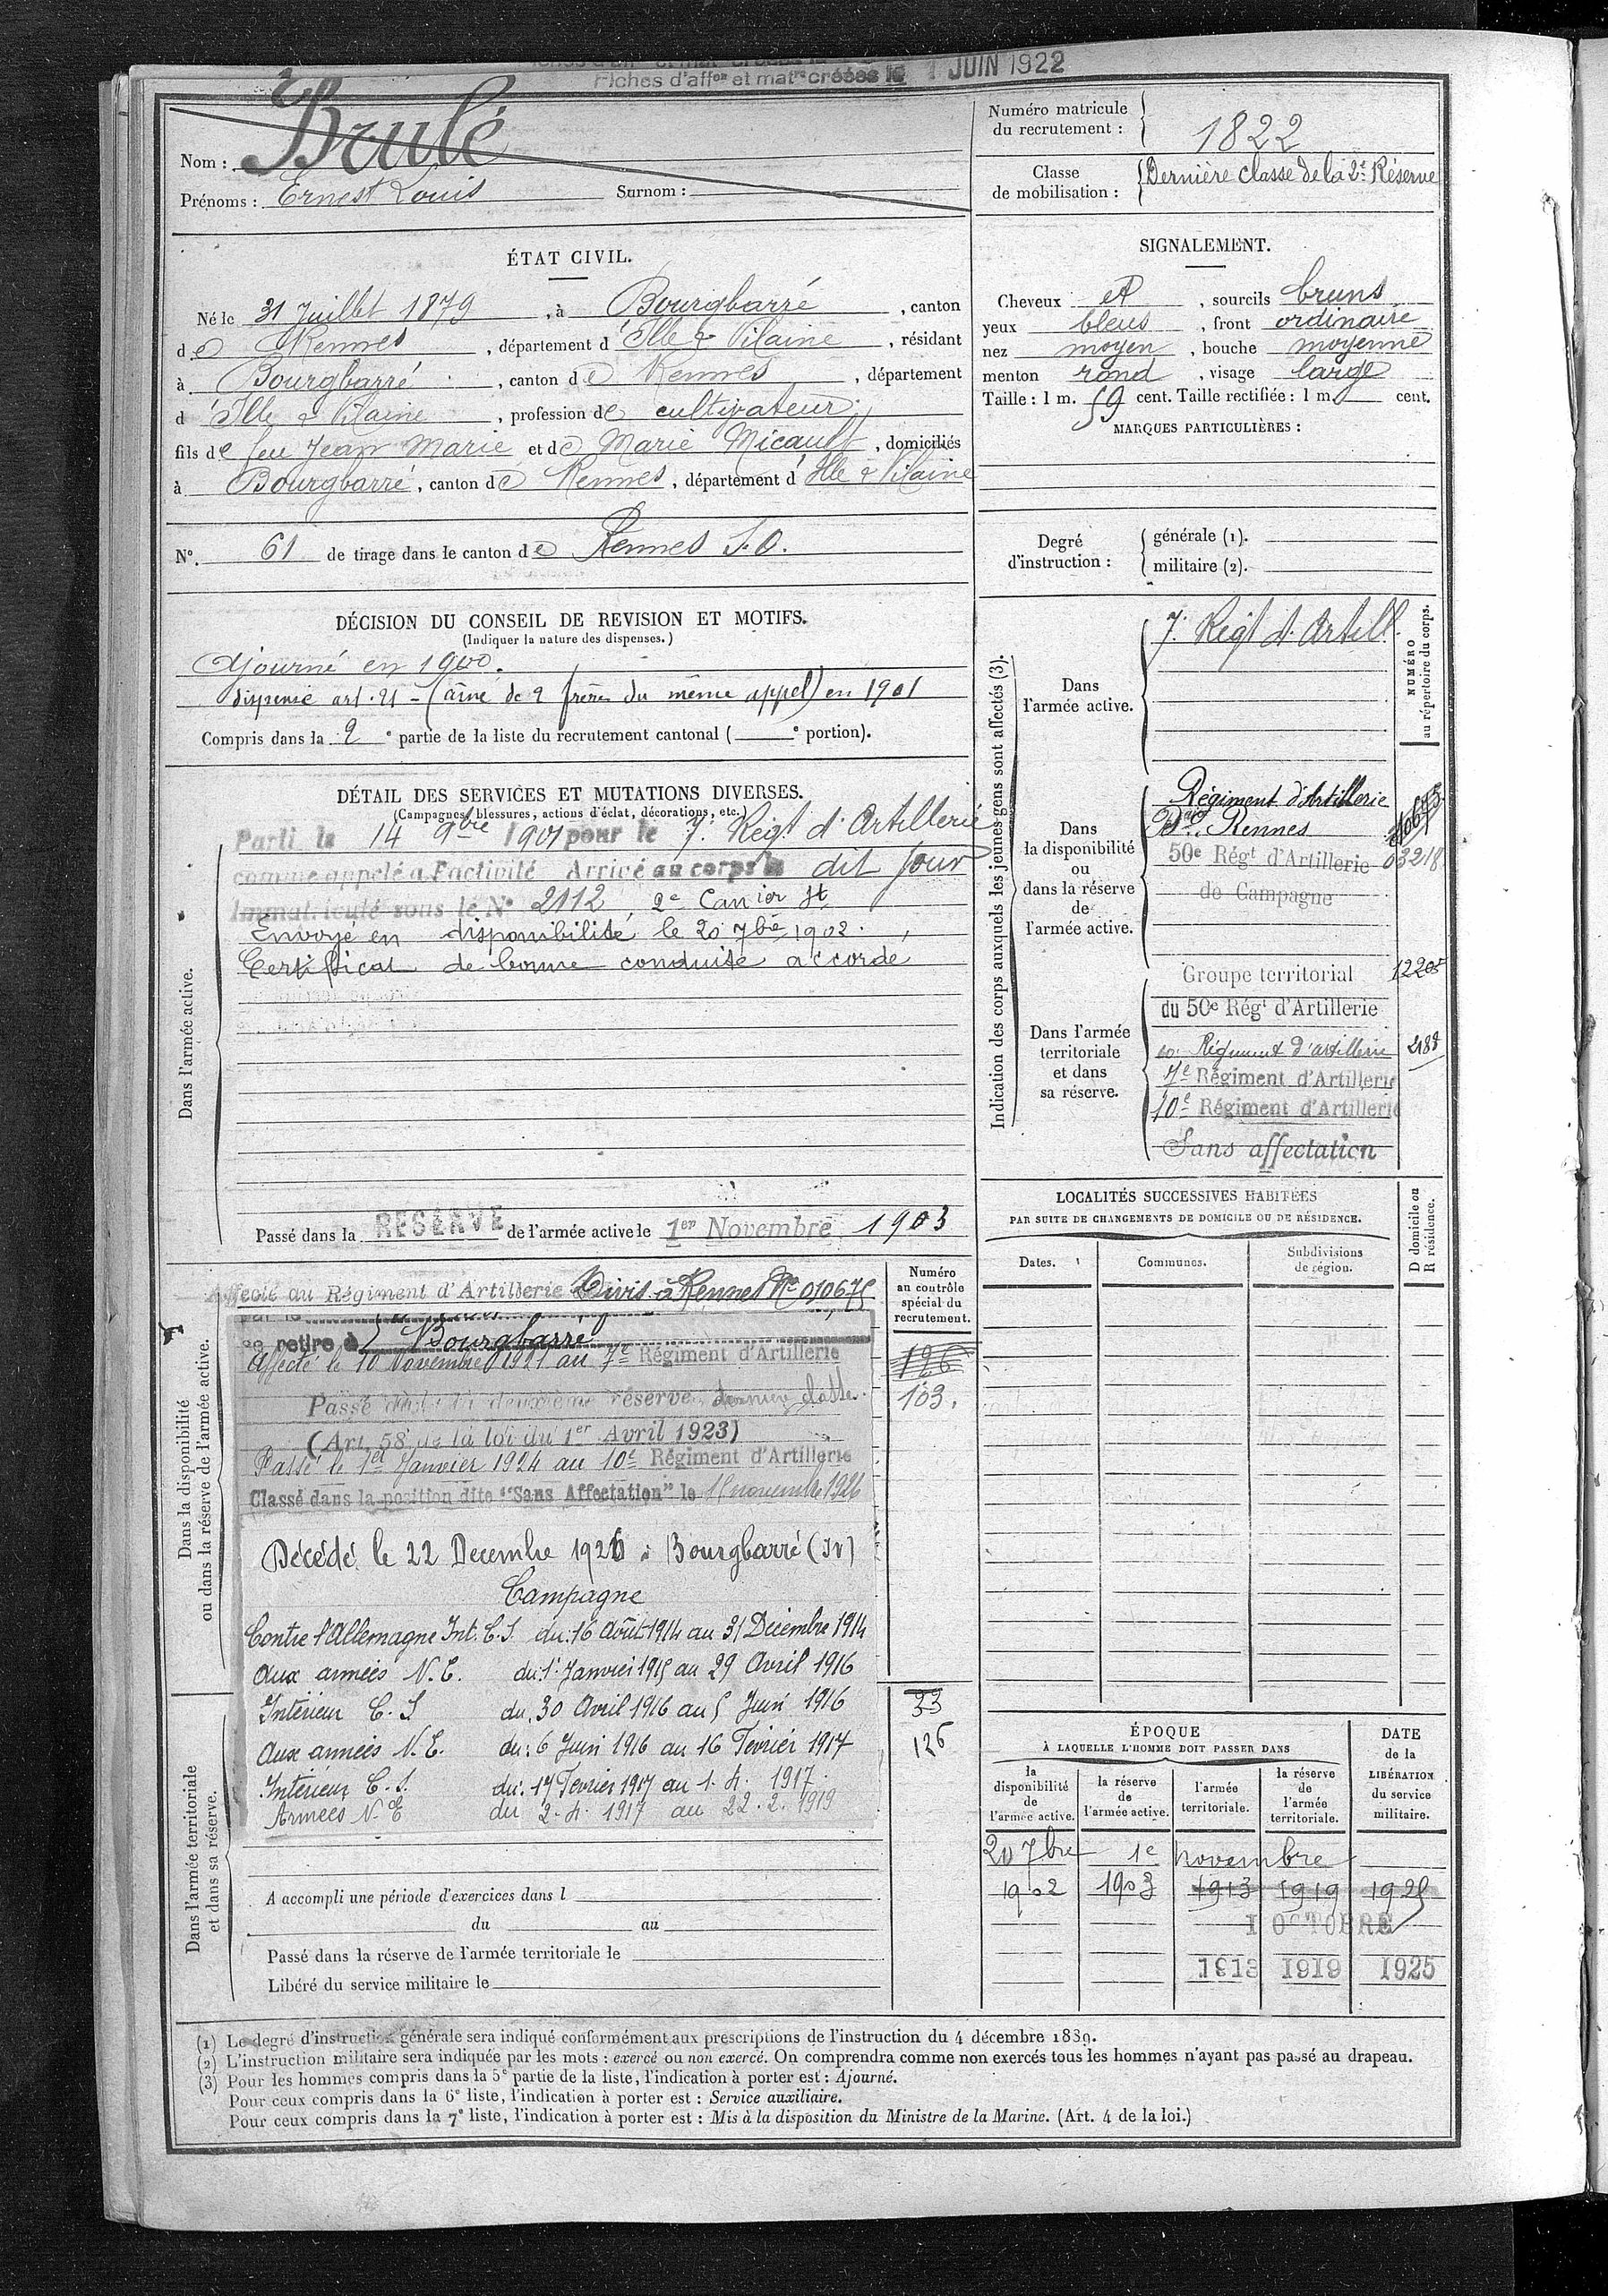 Fiches d'affon et matre créées le 1 JUIN 1922
Nom : Brulé
Prénoms : Ernest Louis Surnom :
Numéro matricule du recrutement : 1822
Classe de mobilisation : Dernière classe de la 2e Réserve
ÉTAT CIVIL.
Né le 31 Juillet 1879, à Bourgbarré, canton
de Rennes, département d'Ille & Vilaine, résidant
à Bourgbarré, canton de Rennes, département
d'Ille & Vilaine, profession de cultivateur
fils de feu Jean Marie et de Marie Micault, domiciliés
à Bourgbarré, canton de Rennes, département d'Ille & Vilaine
N°. 61 de tirage dans le canton de Rennes S.O.
SIGNALEMENT.
Cheveux et, sourcils bruns
yeux bleus, front ordinaire
nez moyen, bouche moyenne
menton rond, visage large
Taille : 1 m. 59 cent. Taille rectifiée : 1 m. cent.
MARQUES PARTICULIÈRES :
Degré d'instruction :
générale (1).
militaire (2).
DÉCISION DU CONSEIL DE REVISION ET MOTIFS.
(Indiquer la nature des dispenses.)
Ajourné en 1900.
dispensé art. 21 - (aîné de 2 frères du même appel) en 1901
Compris dans la 2e partie de la liste du recrutement cantonal ( e portion).
DÉTAIL DES SERVICES ET MUTATIONS DIVERSES.
(Campagnes, blessures, actions d'éclat, décorations, etc.)
Dans l'armée active.
Parti le 14 9bre 1901 pour le 7. Regt d'Artillerie
comme appelé à l'activité Arrivé au corps le dit jour
Immatriculé sous le N° 2112, 2e Canier st
Envoyé en disponibilité le 20 7bre 1902.
Certificat de bonne conduite accordé
Passé dans la RÉSERVE de l'armée active le 1er Novembre 1903
Indication des corps auxquels les jeunes gens sont affectés (3).
NUMÉRO au répertoire du corps.
Dans l'armée active.
7. Regt d'Artill.
Dans la disponibilité ou dans la réserve de l'armée active.
Régiment d'Artillerie
Rennes
50e Régt d'Artillerie 03218
de Campagne
Dans l'armée territoriale et dans sa réserve.
Groupe territorial 12205
du 50e Régt d'Artillerie
Régiment d'artillerie 2188
7e Régiment d'Artillerie
10e Régiment d'Artillerie
Sans affectation
LOCALITÉS SUCCESSIVES HABITÉES
PAR SUITE DE CHANGEMENTS DE DOMICILE OU DE RÉSIDENCE.
Dates. Communes. Subdivisions de région. D domicile ou R résidence.
Dans la disponibilité ou dans la réserve de l'armée active.
Numéro au contrôle spécial du recrutement.
Affecté au Régiment d'Artillerie Divis. à Rennes No 010675
se retire à Bourgbarré
Affecté le 10 Novembre 1921 au 7e Régiment d'Artillerie
126
Passé dans la deuxième réserve dernière classe.
103.
(Art. 58 de la loi du 1er Avril 1923)
Passé le 1er Janvier 1924 au 10e Régiment d'Artillerie
Classé dans la position dite "Sans Affectation" le 15 novembre 1926
Décédé le 22 Decembre 1926 à Bourgbarré (IV)
Campagne
Contre l'Allemagne Int. C.S. du : 16 Août 1914 au 31 Décembre 1914
Aux armées N.E. du : 1er Janvier 1915 au 29 Avril 1916
Intérieur C.S du 30 Avril 1916 au 5 Juin 1916
33
Aux armées N.E. du : 6 Juin 1916 au 16 Février 1917
126
Intérieur C.S. du : 17 Février 1917 au 1. 4. 1917.
Armées N et E du 2. 4. 1917 au 22. 2. 1919
Dans l'armée territoriale et dans sa réserve.
A accompli une période d'exercices dans l
du au
Passé dans la réserve de l'armée territoriale le
Libéré du service militaire le
ÉPOQUE
À LAQUELLE L'HOMME DOIT PASSER DANS
la disponibilité de l'armée active.
la réserve de l'armée active.
l'armée territoriale.
la réserve de l'armée territoriale.
DATE de la LIBÉRATION du service militaire.
20 7bre 1e novembre
1902 1903 1913 1919 1925
1 OCTOBRE
1913 1919 1925
(1) Le degré d'instruction générale sera indiqué conformément aux prescriptions de l'instruction du 4 décembre 1889.
(2) L'instruction militaire sera indiquée par les mots : exercé ou non exercé. On comprendra comme non exercés tous les hommes n'ayant pas passé au drapeau.
(3) Pour les hommes compris dans la 5e partie de la liste, l'indication à porter est : Ajourné.
Pour ceux compris dans la 6e liste, l'indication à porter est : Service auxiliaire.
Pour ceux compris dans la 7e liste, l'indication à porter est : Mis à la disposition du Ministre de la Marine. (Art. 4 de la loi.)